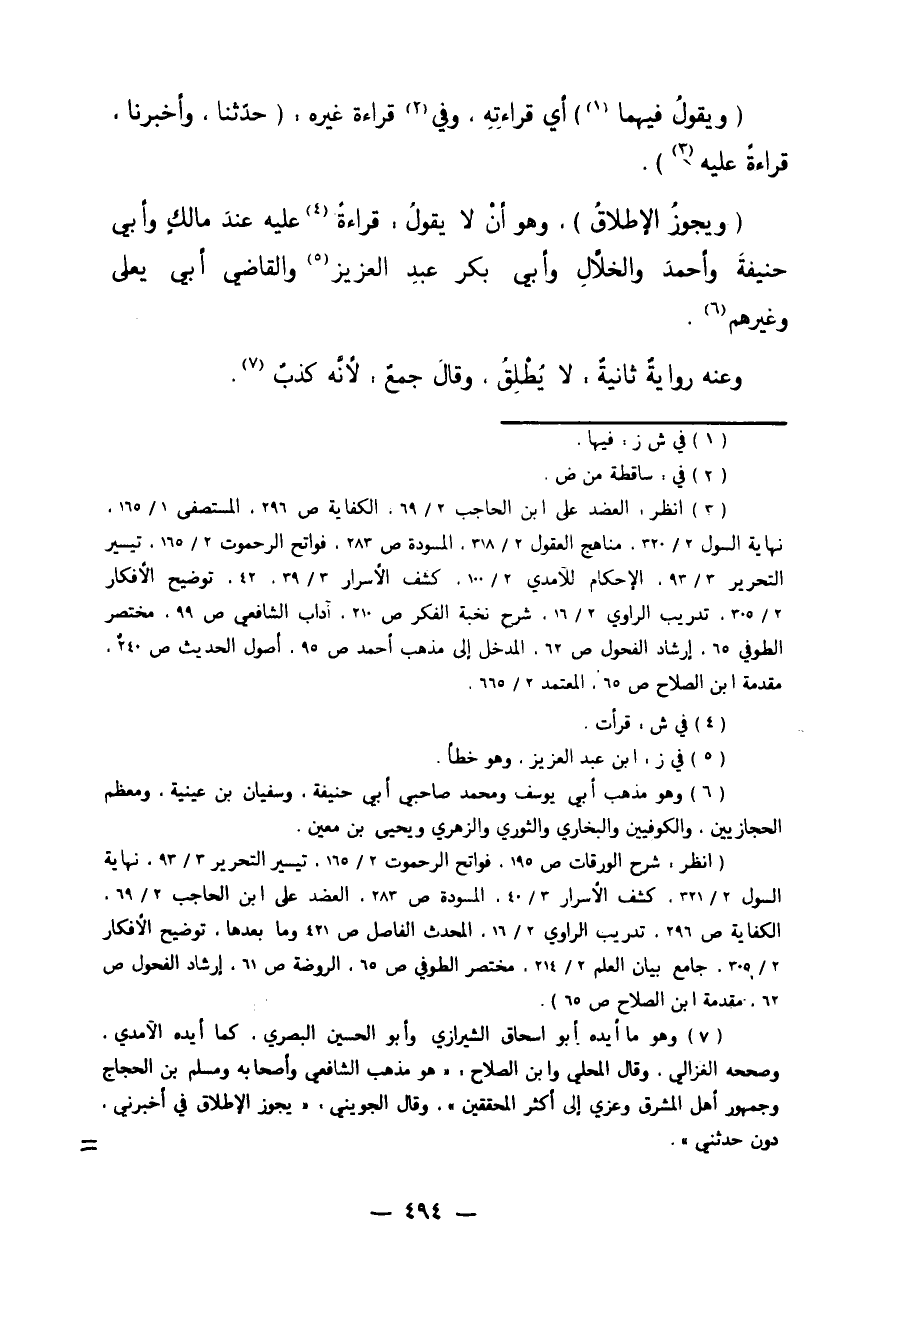 ( ويقولُ فيهما (١) ) أي قراءتِهِ ، وفي (٢) قراءة غيره : ( حدّثنا ، وأخبرنا ،
قراءةً عليه (٣) ) .
( ويجوزُ الإطلاقُ ) ، وهو أنْ لا يقولُ : قراءةً (٤) عليه عندَ مالكٍ وأبي
حنيفةَ وأحمدَ والخلَّالِ وأبي بكر عبدِ العزيز (٥) والقاضي أبي يعلى
وغيرهم (٦) .
وعنه روايةٌ ثانيةٌ : لا يُطْلِقُ ، وقالَ جمعٌ : لأنَّه كذبٌ (٧) .
( ١ ) في ش ز : فيها .
( ٢ ) في : ساقطة من ض .
( ٣ ) انظر : العضد على ابن الحاجب ٢ / ٦٩ ، الكفاية ص ٢٩٦ ، المستصفى ١ / ١٦٥ ،
نهاية السول ٢ / ٣٢٠ ، مناهج العقول ٢ / ٣١٨ ، المسودة ص ٢٨٣ ، فواتح الرحموت ٢ / ١٦٥ ، تيسير
التحرير ٣ / ٩٣ ، الإحكام للآمدي ٢ / ١٠٠ ، كشف الأسرار ٣ / ٣٩ ، ٤٢ ، توضيح الأفكار
٢ / ٣٠٥ ، تدريب الراوي ٢ / ١٦ ، شرح نخبة الفكر ص ٢١٠ ، آداب الشافعي ص ٩٩ ، مختصر
الطوفي ٦٥ ، إرشاد الفحول ص ٦٢ ، المدخل إلى مذهب أحمد ص ٩٥ ، أصول الحديث ص ٢٤٠ ،
مقدمة ابن الصلاح ص ٦٥ ، المعتمد ٢ / ٦٦٥ .
( ٤ ) في ش : قرأت .
( ٥ ) في ز : ابن عبد العزيز ، وهو خطأ .
( ٦ ) وهو مذهب أبي يوسف ومحمد صاحبي أبي حنيفة ، وسفيان بن عينية ، ومعظم
الحجازيين ، والكوفيين والبخاري والثوري والزهري ويحيى بن معين .
( انظر : شرح الورقات ص ١٩٥ ، فواتح الرحموت ٢ / ١٦٥ ، تيسير التحرير ٣ / ٩٣ ، نهاية
السول ٢ / ٣٢١ ، كشف الأسرار ٣ / ٤٠ ، المسودة ص ٢٨٣ ، العضد على ابن الحاجب ٢ / ٦٩ ،
الكفاية ص ٢٩٦ ، تدريب الراوي ٢ / ١٦ ، المحدث الفاصل ص ٤٢١ وما بعدها ، توضيح الأفكار
٢ / ٣٠٥ ، جامع بيان العلم ٢ / ٢١٤ ، مختصر الطوفي ص ٦٥ ، الروضة ص ٦١ ، إرشاد الفحول ص
٦٢ ، مقدمة ابن الصلاح ص ٦٥ ) .
( ٧ ) وهو ما أيده أبو اسحاق الشيرازي وأبو الحسين البصري ، كما أيده الآمدي ،
وصححه الغزالي ، وقال المحلي وابن الصلاح : « هو مذهب الشافعي وأصحابه ومسلم بن الحجاج
وجمهور أهل المشرق وعزي إلى أكثر المحققين » ، وقال الجويني : « يجوز الإطلاق في أخبرني ،
دون حدثني » .
=
— ٤٩٤ —